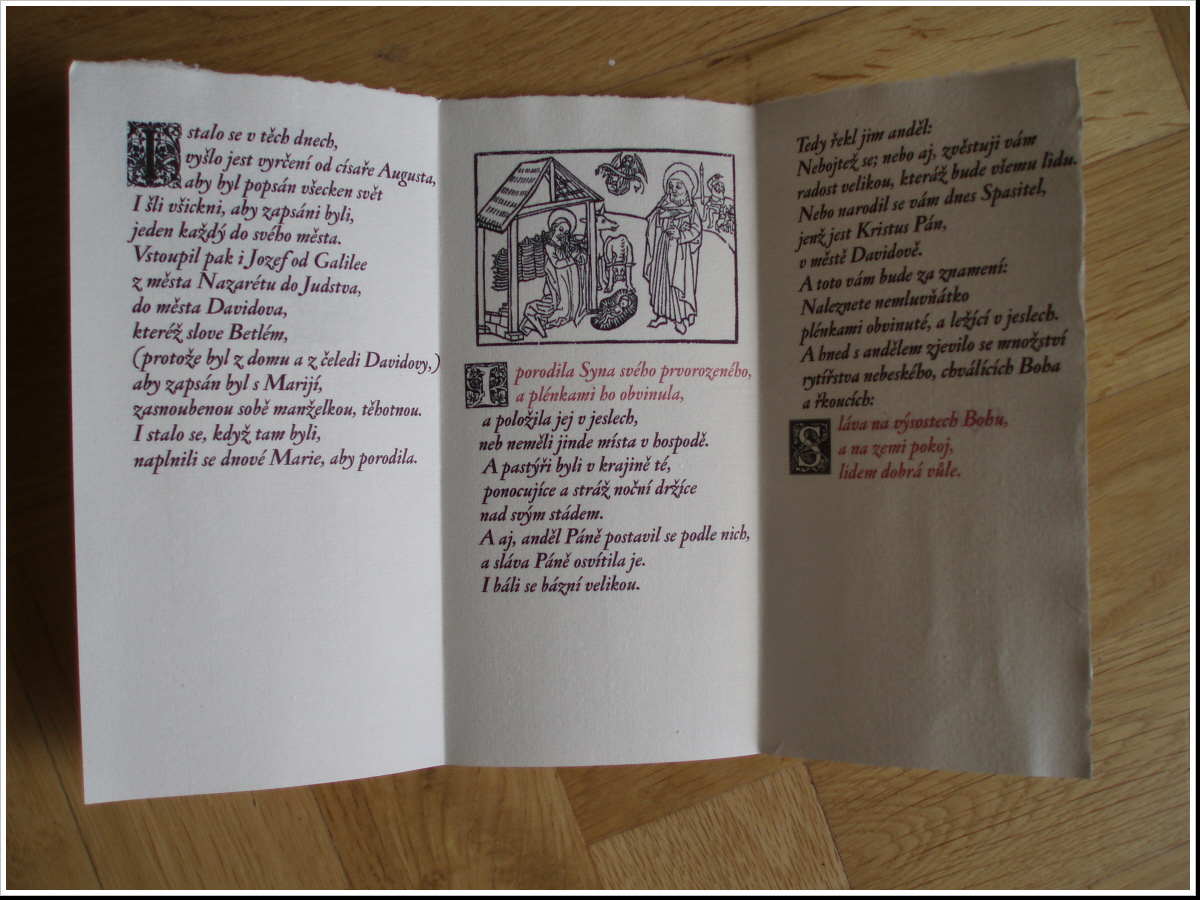 I stalo se v těch dnech,
vyšlo jest vyrčení od císaře Augusta,
aby byl popsán všecken svět
I šli všickni, aby zapsáni byli,
jeden každý do svého města.
Vstoupil pak i Jozef od Galilee
z města Nazarétu do Judstva,
do města Davidova,
kteréž slove Betlém,
(protože byl z domu a z čeledi Davidovy,)
aby zapsán byl s Marijí,
zasnoubenou sobě manželkou, těhotnou.
I stalo se, když tam byli,
naplnili se dnové Marie, aby porodila.
I porodila Syna svého prvorozeného,
a plénkami ho obvinula,
a položila jej v jeslech,
neb neměli jinde místa v hospodě.
A pastýři byli v krajině té,
ponocujíce a stráž noční držíce
nad svým stádem.
A aj, anděl Páně postavil se podle nich,
a sláva Páně osvítila je.
I báli se bázní velikou.
Tedy řekl jim anděl:
Nebojtež se; nebo aj, zvěstuji vám
radost velikou, kteráž bude všemu lidu.
Nebo narodil se vám dnes Spasitel,
jenž jest Kristus Pán,
v městě Davidově.
A toto vám bude za znamení:
Naleznete nemluvňátko
plénkami obvinuté, a ležící v jeslech.
A hned s andělem zjevilo se množství
rytířstva nebeského, chválících Boha
a řkoucích:
Sláva na výsostech Bohu,
a na zemi pokoj,
lidem dobrá vůle.